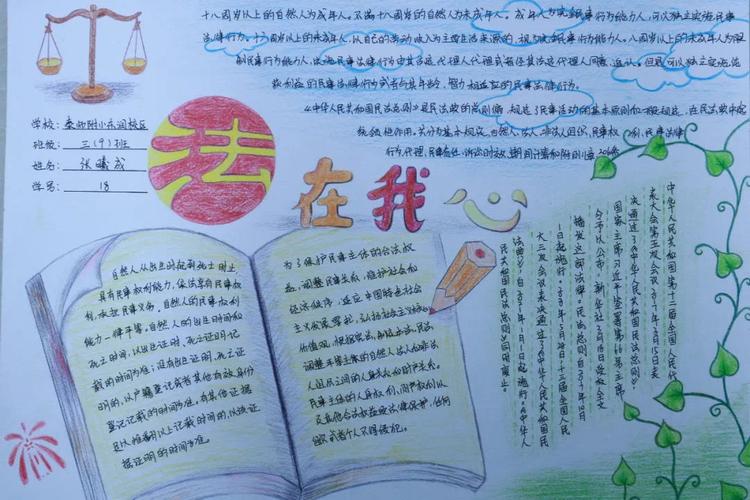 十八周岁以上的自然人为成年人。不满十八周岁的自然人为未成年人。成年人为完全民事行为能力人,可以独立实施民事
法律行为。十六周岁以上的未成年人,以自己的劳动收入为主要生活来源的,视为完全民事行为能力人。八周岁以上的未成年人为限
制民事行为能力人,实施民事法律行为由其法定代理人代理或者经其法定代理人同意、追认。但是可以独立实施纯
获利益的民事法律行为或者与其年龄、智力相适应的民事法律行为。
《中华人民共和国民法总则》是民法典的总则编,规定了民事活动的基本原则和一般规定,在民法典中起
统领性作用。共分为基本规定、自然人、法人、非法人组织、民事权利、民事法律
行为、代理、民事责任、诉讼时效、期间计算和附则11章、206条
学校:秦师附小东润校区
班级:三(9)班
姓名:张曦成
学号:18
法在我心
自然人从出生时起到死亡时止
具有民事权利能力,依法享有民事权
利,承担民事义务。自然人的民事权利
能力一律平等。自然人的出生时间和
死亡时间,以出生证明、死亡证明记
载的时间为准;没有出生证明、死亡证
明的,以户籍登记或者其他有效身份
登记记载的时间为准。有其他证据
足以推翻以上记载时间的,以该证
据证明的时间为准。
为了保护民事主体的合法权
益,调整民事关系,维护社会和
经济秩序,适应中国特色社会
主义发展要求,弘扬社会主义核心
价值观,根据宪法,制定本法。民法
调整平等主体的自然人、法人和非法
人组织之间的人身关系和财产关系。
民事主体的人身权利、财产权利以
及其他合法权益受法律保护,任何
组织或者个人不得侵犯。
中华人民共和国第十二届全国人民代
表大会第五次会议2017年3月15日表
决通过了《中华人民共和国民法总则》
国家主席习近平签署第66号主席
令予以公布。新华社3月18日受权全文
播发这部法律。民法总则自2017年10月
1日起施行。2020年5月28日,十三届全国人民
大三次会议表决通过了《中华人民共和国民
法典》,自2021年1月1日起施行。《中华人
民共和国民法总则》同时废止。